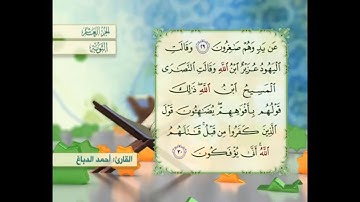 الجزء العاشر
التوبة
عَن يَدٍ وَهُمْ صَٰغِرُونَ ٢٩ وَقَالَتِ
ٱلْيَهُودُ عُزَيْرٌ ٱبْنُ ٱللَّهِ وَقَالَتِ ٱلنَّصَٰرَى
ٱلْمَسِيحُ ٱبْنُ ٱللَّهِ ۖ ذَٰلِكَ
قَوْلُهُم بِأَفْوَٰهِهِمْ ۖ يُضَٰهِـُٔونَ قَوْلَ
ٱلَّذِينَ كَفَرُوا۟ مِن قَبْلُ ۚ قَٰتَلَهُمُ
ٱللَّهُ ۚ أَنَّىٰ يُؤْفَكُونَ ٣٠
القارئ: أحمد الدباغ